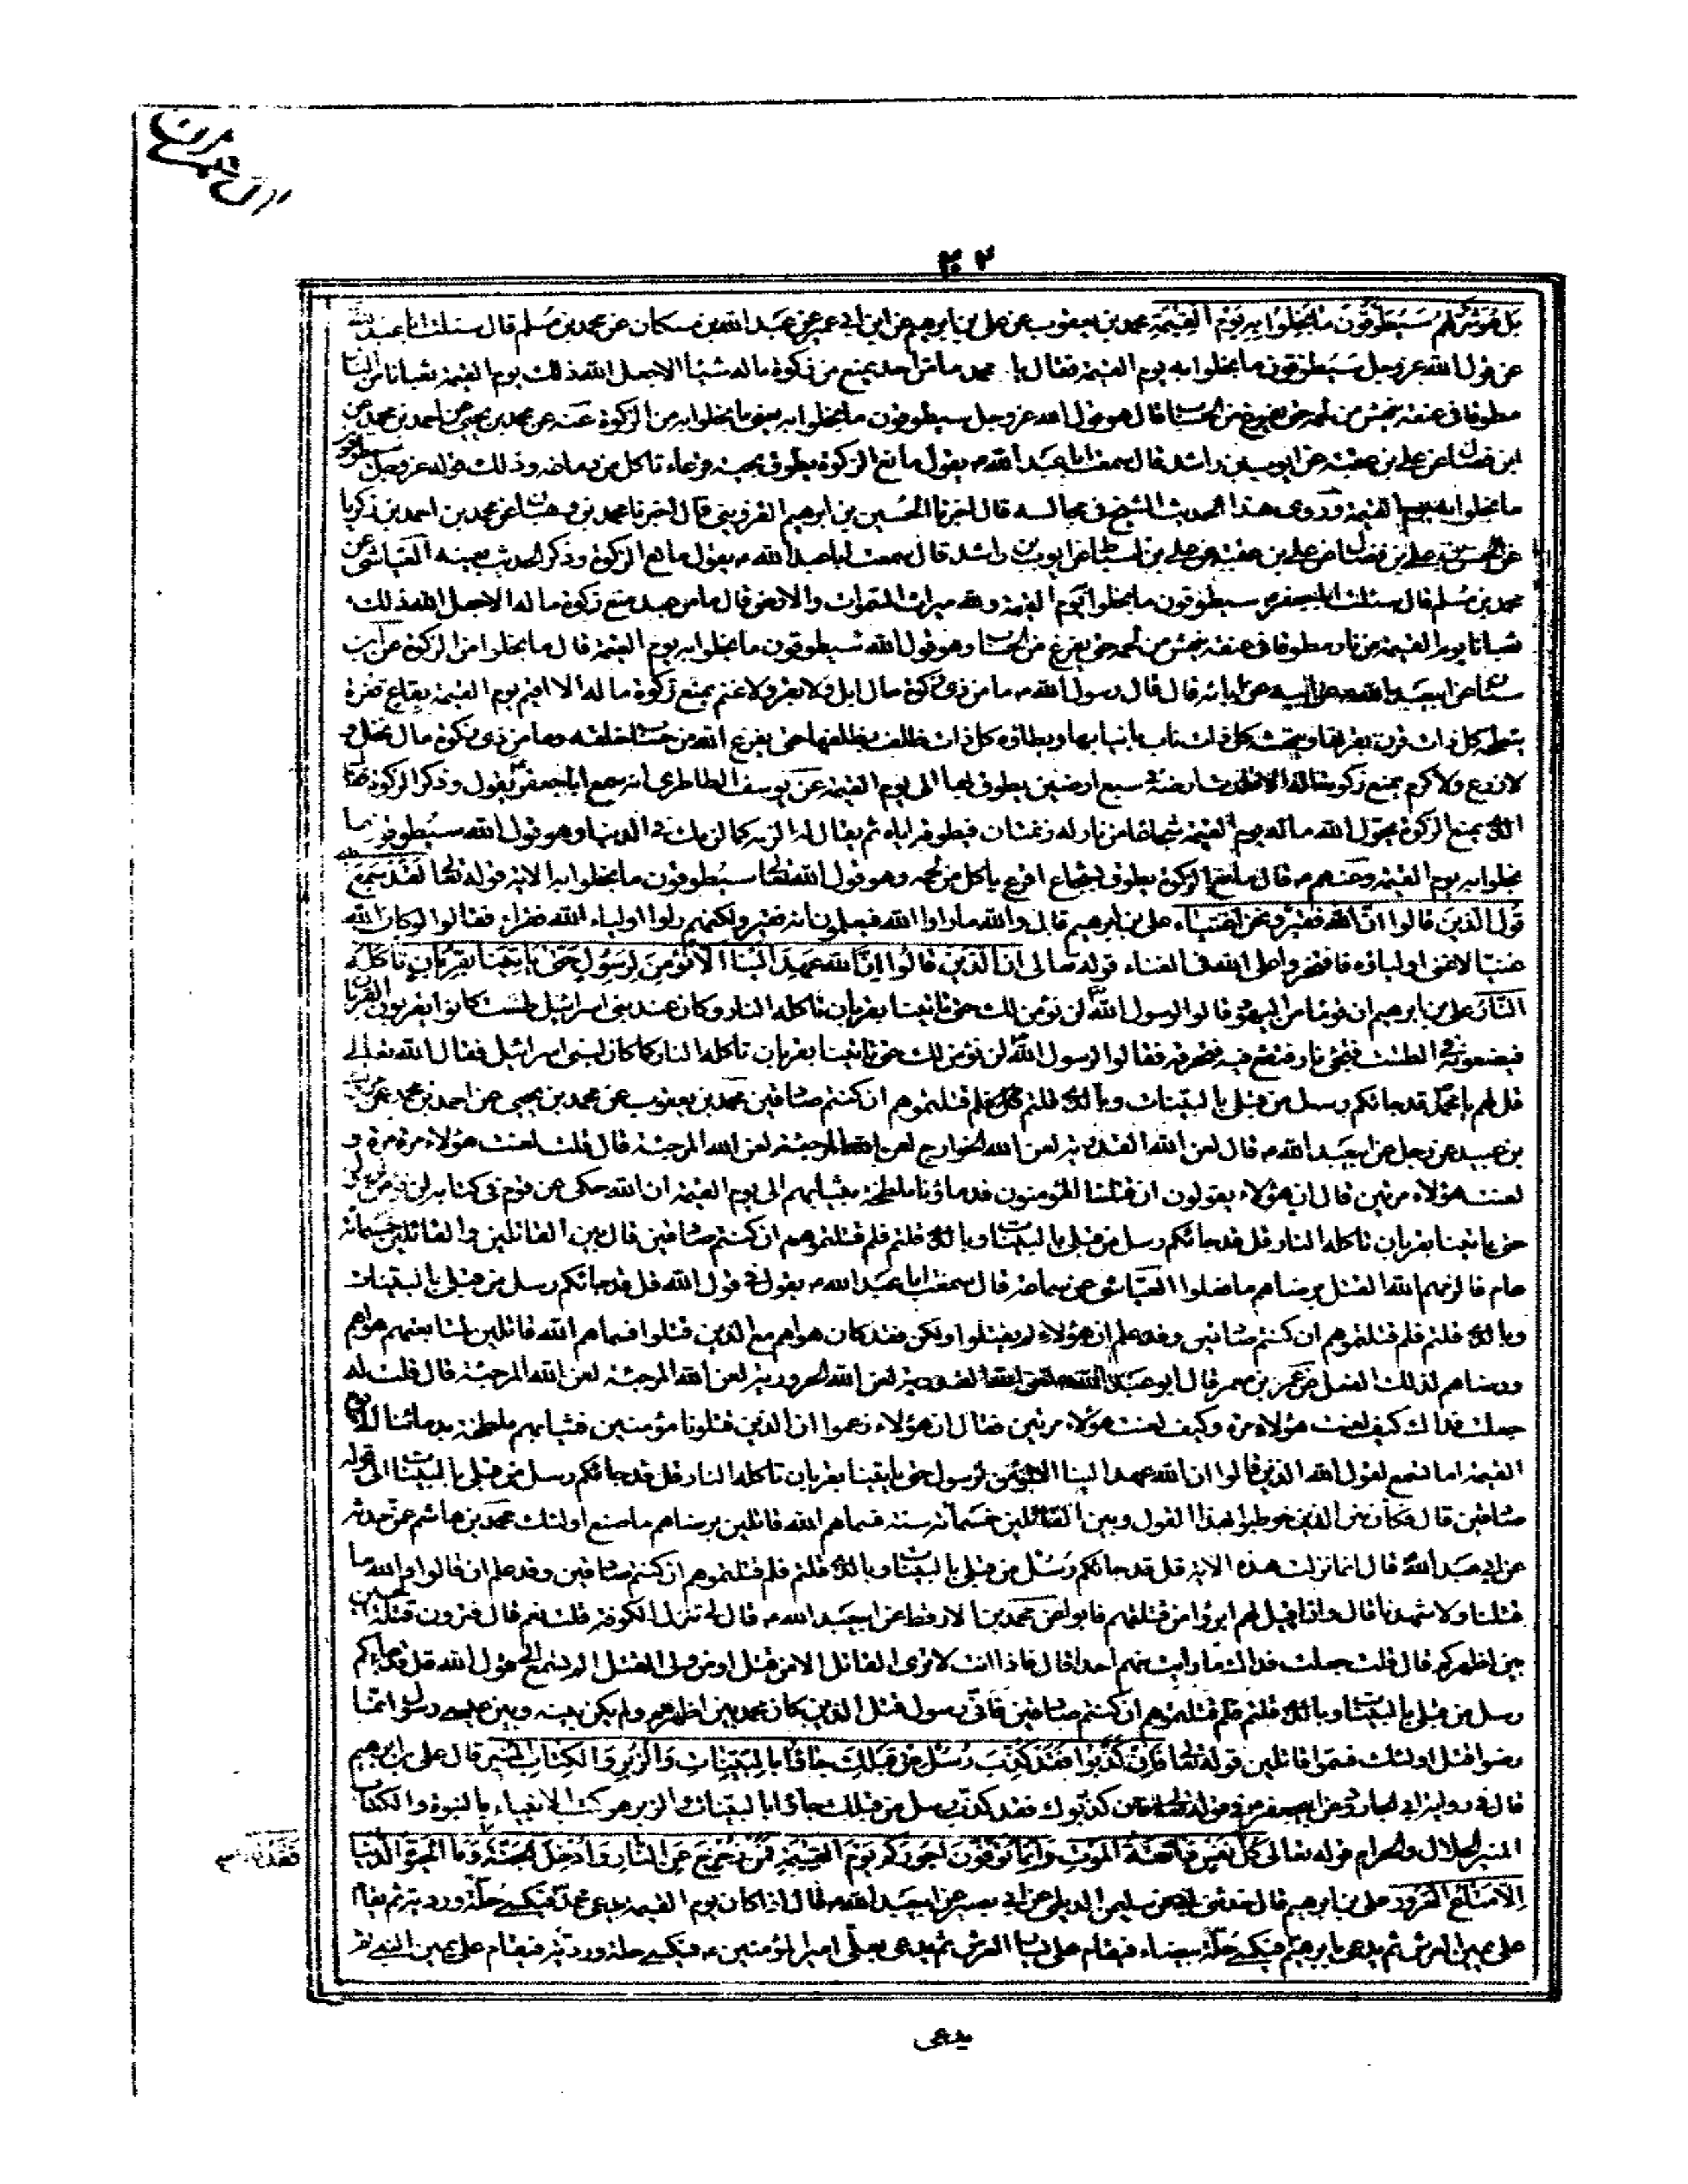 ال عمران
٢٠٢
بل هو شر لهم سيطوقون ما بخلوا به يوم القيمة محمد بن يعقوب عن علي بن ابرهيم عن ابن ابي عمير عن عبد الله بن مسكان عن محمد بن مسلم قال سئلت ابا عبد الله
عن قول الله عز وجل سيطوقون ما بخلوا به يوم القيمة فقال يا محمد ما من احد يمنع من زكوة ماله شيئا الا جعل الله ذلك يوم القيمة ثعبانا من النار
مطوقا في عنقه ينهش من لحمه حتى يفرغ من الحساب قال هو قول الله عز وجل سيطوقون ما بخلوا به يعني ما بخلوا به من الزكوة عنه عن محمد بن يحيى عن احمد بن محمد عن
ابن فضال عن علي بن عقبة عن ايوب بن راشد قال سمعت ابا عبد الله ع يقول مانع الزكوة يطوق بحية قرعاء تاكل من دماغه وذلك قوله عز وجل سيطوقون
ما بخلوا به يوم القيمة وروى هذا الحديث الشيخ في مجالسه قال اخبرنا الحسين بن ابرهيم القزويني قال اخبرنا محمد بن وهبان عن محمد بن احمد بن زكريا
عن الحسن بن علي بن فضال عن علي بن عقبة عن علي بن اسباط عن ايوب بن راشد قال سمعت ابا عبد الله ع يقول مانع الزكوة وذكر الحديث بعينه العياشي عن
محمد بن مسلم قال سئلت ابا جعفر ع سيطوقون ما بخلوا يوم القيمة ولله ميراث السموات والارض قال ما من عبد منع زكوة ماله الا جعل الله ذلك
ثعبانا يوم القيمة من نار مطوقا في عنقه ينهش من لحمه حتى يفرغ من الحساب وهو قول الله سيطوقون ما بخلوا به يوم القيمة قال ما بخلوا من الزكوة عن ابن
سنان عن ابي عبد الله ع عن ابيه عن ابائه قال قال رسول الله ص ما من ذي زكوة مال ابل ولا بقر ولا غنم يمنع زكوة ماله الا اقيم يوم القيمة بقاع قفرة
ينطحه كل ذات قرن بقرنها وينهشه كل ذات ناب بانيابها ويطاؤه كل ذات ظلف بظلفها حتى يفرغ الله من حساب خلقه وما من ذي زكوة مال نخل و
لا زرع ولا كرم يمنع زكوة ماله الا قلدت ارضه في سبع ارضين يطوق بها الى يوم القيمة عن يوسف الطاطري انه سمع ابا جعفر ع يقول وذكر الزكوة فقال
الذي يمنع الزكوة يحول الله ماله يوم القيمة شجاعا من نار له زنمتان فيطوقه اياه ثم يقال له الزمه كما لزمك في الدنيا وهو قول الله سيطوقون ما
بخلوا به يوم القيمة وعنهم ع قال مانع الزكوة يطوق بشجاع اقرع ياكل من لحمه وهو قول الله تعالى سيطوقون ما بخلوا به الاية قوله تعالى لقد سمع الله
قول الذين قالوا ان الله فقير ونحن اغنياء علي بن ابرهيم قال والله ما راوا الله فيعلمون انه فقير ولكنهم راوا اولياء الله فقراء فقالوا لو كان الله
غنيا لاغنى اولياؤه فافتخروا على الله في الغناء قوله تعالى ان الذين قالوا ان الله عهد الينا الا نؤمن لرسول حتى ياتينا بقربان تاكله
النار علي بن ابرهيم ان قوما من اليهود قالوا لرسول الله لن نؤمن لك حتى تاتينا بقربان تاكله النار وكان عند بني اسرائيل طست كانوا يقربون القربان
فيضعونه في الطست فتجئ نار فتقع فيه فتحرقه فقالوا لرسول الله لن نؤمن لك حتى تاتينا بقربان تاكله النار كما كان لبني اسرائيل فقال الله تعالى
قل لهم يا محمد قد جائكم رسل من قبلي بالبينات وبالذي قلتم فلم قتلتموهم ان كنتم صادقين محمد بن يعقوب عن محمد بن يحيى عن احمد بن محمد عن
بن عبيد عن رجل عن ابي عبد الله ع قال لعن الله القدرية لعن الله الخوارج لعن الله المرجئة لعن الله المرجئة قال قلت لعنت هؤلاء مرة مرة و
لعنت هؤلاء مرتين قال ان هؤلاء يقولون ان قتلتنا مؤمنون فدماؤنا ملطخة بثيابهم الى يوم القيمة ان الله حكى عن قوم في كتابه لن نؤمن لرسول
حتى ياتينا بقربان تاكله النار قل قد جائكم رسل من قبلي بالبينات وبالذي قلتم فلم قتلتموهم ان كنتم صادقين قال بين القائلين والقاتلين خمسمائة
عام فالزمهم الله القتل برضاهم ما فعلوا العياشي عن سماعة قال سمعت ابا عبد الله ع يقول في قول الله قل قد جائكم رسل من قبلي بالبينات
وبالذي قلتم فلم قتلتموهم ان كنتم صادقين وقد علم ان هؤلاء لم يقتلوا ولكن فقد كان هواهم مع الذين قتلوا فسماهم الله قاتلين لمتابعتهم هواهم
ورضاهم لذلك الفعل عن عمر بن معمر قال ابو عبد الله ع لعن الله القدرية لعن الله الحرورية لعن الله المرجئة لعن الله المرجئة قال قلت له
جعلت فداك كيف لعنت هؤلاء مرة وكيف لعنت هؤلاء مرتين فقال ان هؤلاء زعموا ان الذين قتلونا مؤمنين فثيابهم ملطخة بدمائنا الى يوم
القيمة اما تسمع لقول الله الذين قالوا ان الله عهد الينا الا نؤمن لرسول حتى ياتينا بقربان تاكله النار قل قد جائكم رسل من قبلي بالبينات الى قوله
صادقين قال فكان بين الذين خوطبوا بهذا القول وبين القاتلين خمسمائة سنة فسماهم الله قاتلين برضاهم ما صنع اولئك محمد بن هاشم عمن حدثه
عن ابي عبد الله قال لما نزلت هذه الاية قل قد جائكم رسل من قبلي بالبينات وبالذي قلتم فلم قتلتموهم ان كنتم صادقين وقد علم ان قالوا والله ما
قتلنا ولا شهدنا قال وانما قيل لهم ابرؤا من قتلتهم فابوا عن محمد بن الارقط عن ابي عبد الله ع قال لي تنزل الكوفة قلت نعم قال فترون قتلة الحسين
بين اظهركم قال قلت جعلت فداك ما رايت منهم احدا قال فاذا انت لا ترى القاتل الا من قتل او من ولي القتل الم تسمع الى قول الله قل قد جائكم
رسل من قبلي بالبينات وبالذي قلتم فلم قتلتموهم ان كنتم صادقين فاي رسول قتل الذين كان محمد بين اظهرهم ولم يكن بينه وبين عيسى رسول انما
رضوا قتل اولئك فسموا قاتلين قوله تعالى فان كذبوك فقد كذب رسل من قبلك جاؤا بالبينات والزبر والكتاب المنير قال علي بن ابرهيم
قال في رواية ابي الجارود عن ابي جعفر ع في قوله تعالى فان كذبوك فقد كذب رسل من قبلك جاؤا بالبينات الزبر هو كتب الانبياء بالنبوة والكتاب
المنير الحلال والحرام قوله تعالى كل نفس ذائقة الموت وانما توفون اجوركم يوم القيمة فمن زحزح عن النار وادخل الجنة وما الحيوة الدنيا
فقد فاز
الا متاع الغرور علي بن ابرهيم قال حدثني ابي عن سليمن الديلمي عن ابي بصير عن ابي عبد الله ع قال اذا كان يوم القيمة يدعى محمد فيكسى حلة وردية ثم يقام
على يمين العرش ثم يدعى بابرهيم فيكسى حلة بيضاء فيقام على يسار العرش ثم يدعى بعلي امير المؤمنين ع فيكسى حلة وردية فيقام على يمين النبي ثم
يدعى